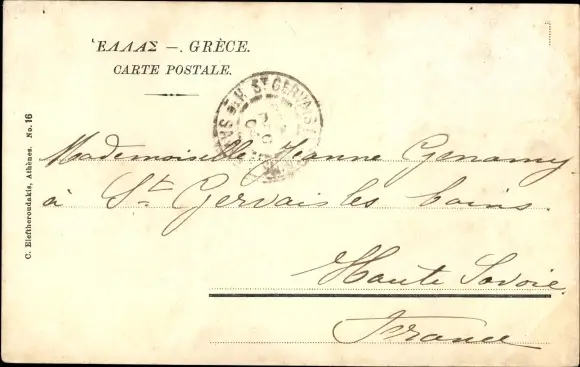 ἙΛΛΑΣ —. GRÈCE.
CARTE POSTALE.
ST GERVAIS
Mademoiselle Jeanne
à St. Gervais les bains.
Haute Savoie.
France
C. Eleftheroudakis, Athènes. No. 16